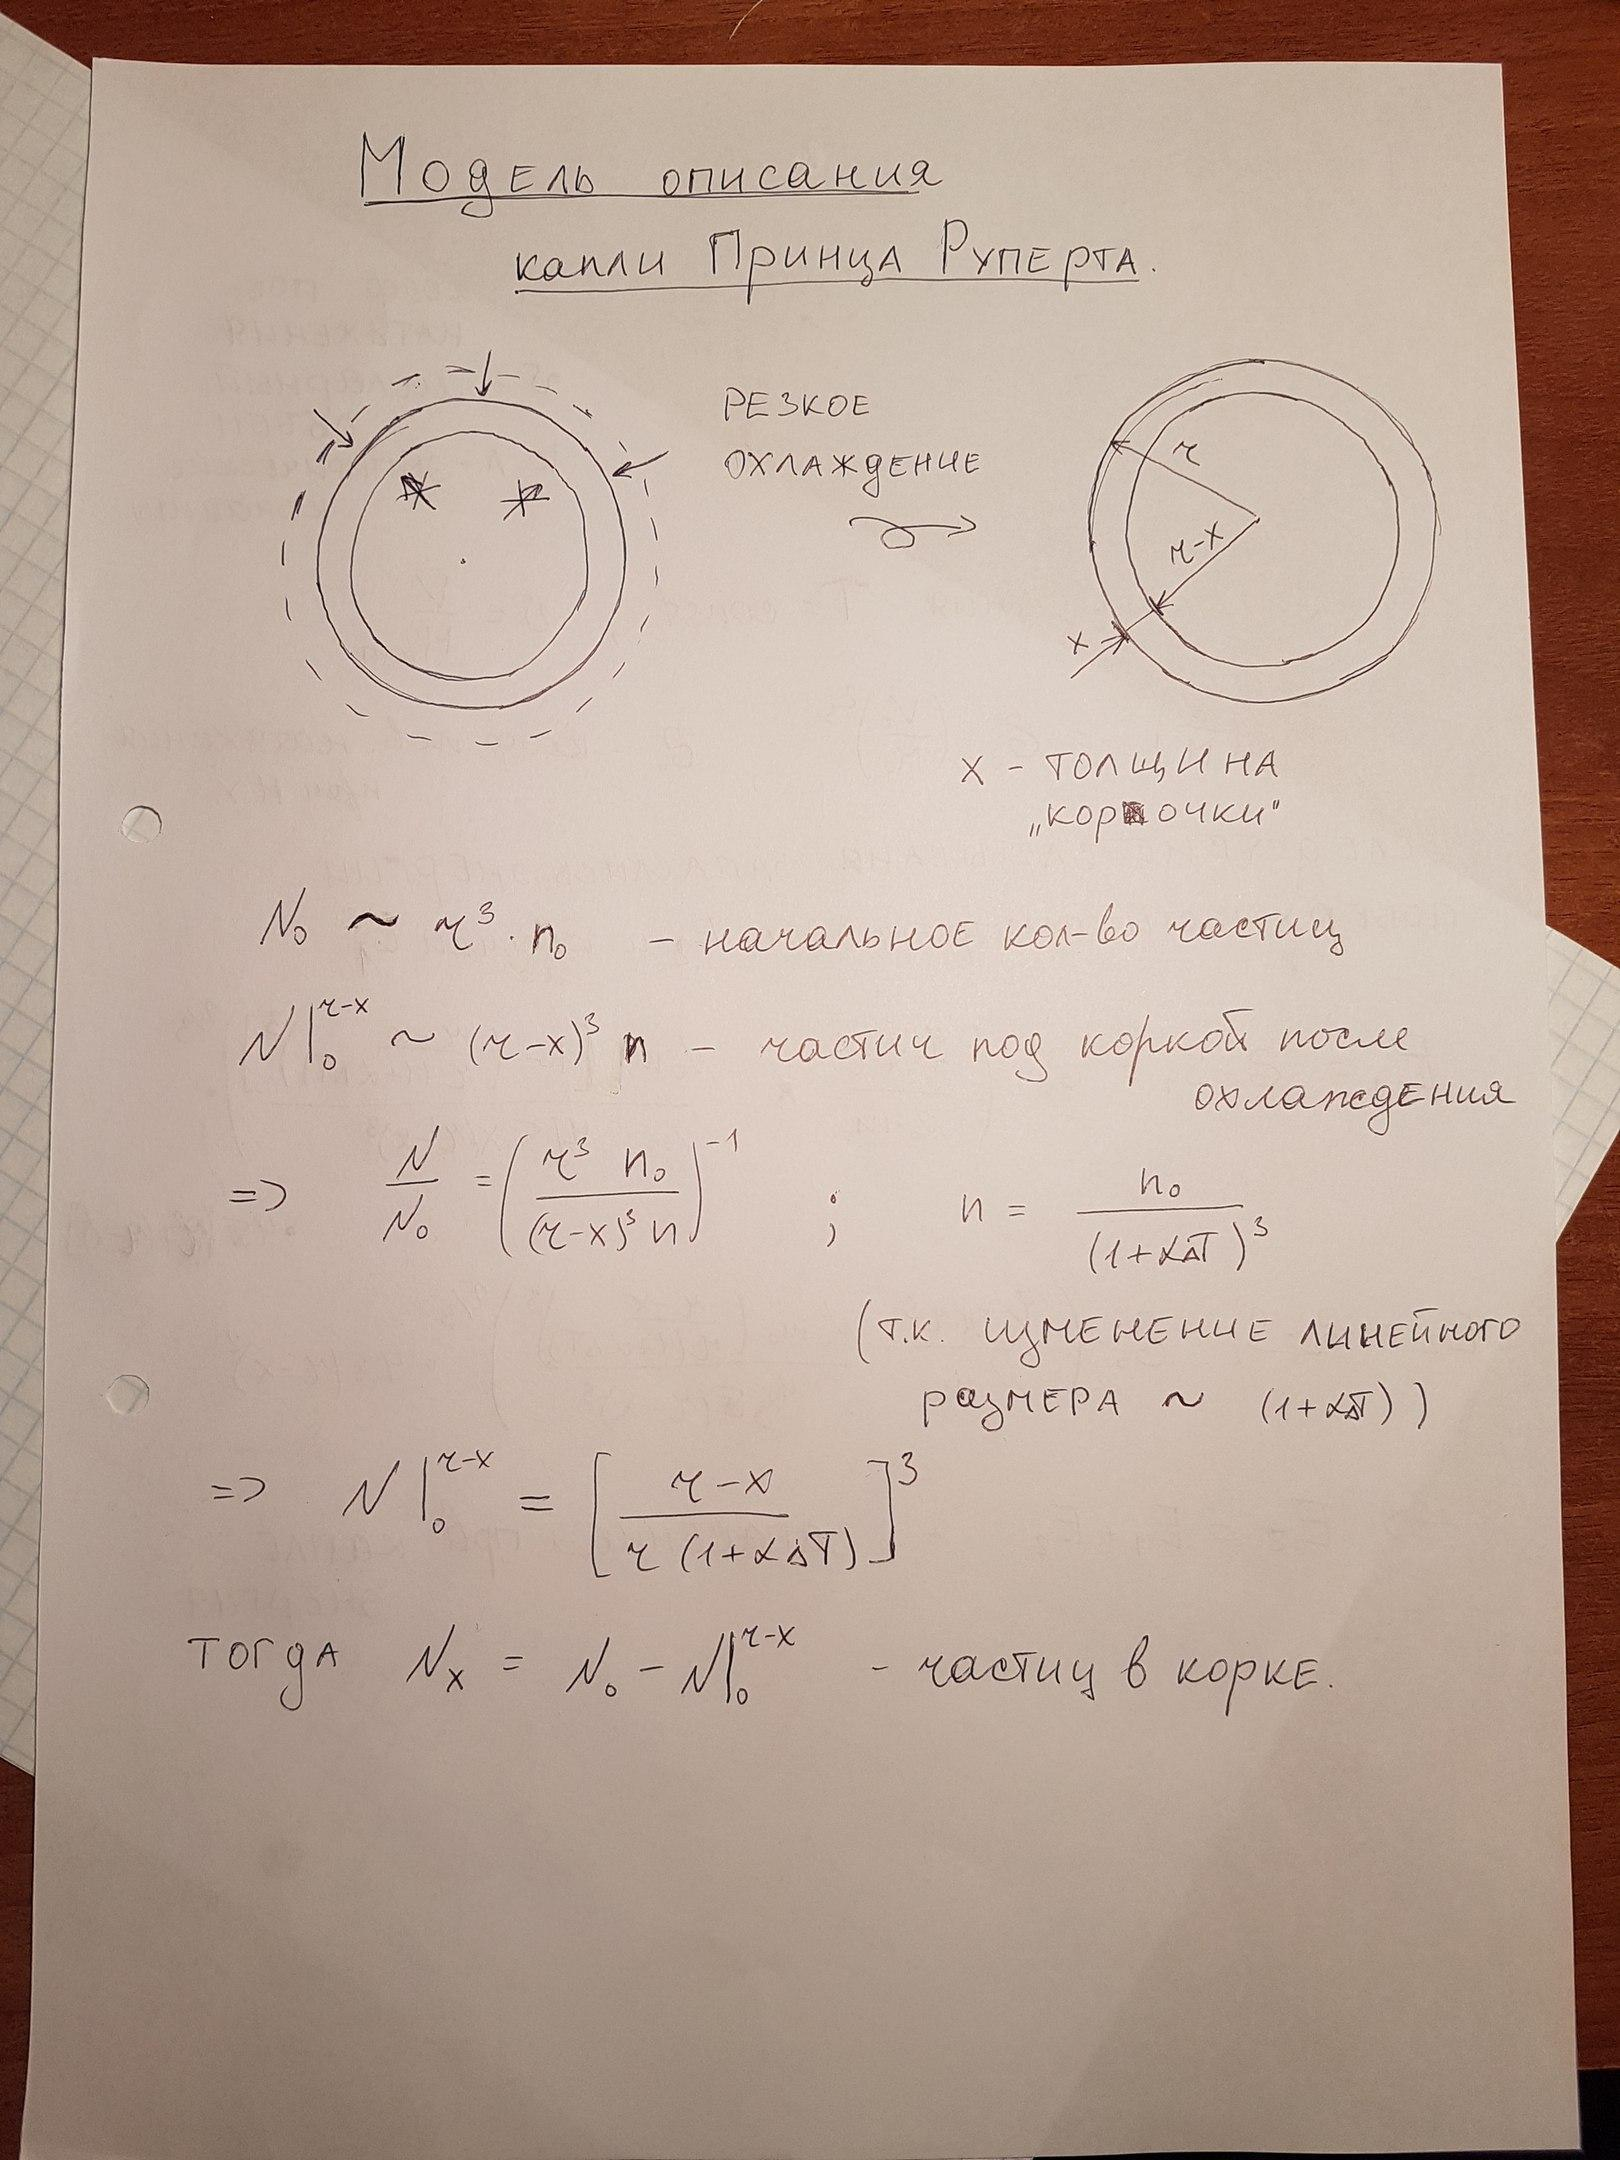 Модель описания
капли Принца Руперта.
РЕЗКОЕ
ОХЛАЖДЕНИЕ
r
r-x
x
x - ТОЛЩИНА
„корочки"
N₀ ~ r³ · n₀ - начальное кол-во частиц
N|₀^{r-x} ~ (r-x)³ n - частиц под коркой после
охлаждения
=> N/N₀ = (r³ n₀/(r-x)³ n)⁻¹ ; n = n₀/(1+αΔT)³
(т.к. изменение линейного
размера ~ (1+αΔT))
=> N|₀^{r-x} = [r-x/r(1+αΔT)]³
тогда Nₓ = N₀ - N|₀^{r-x} - частиц в корке.